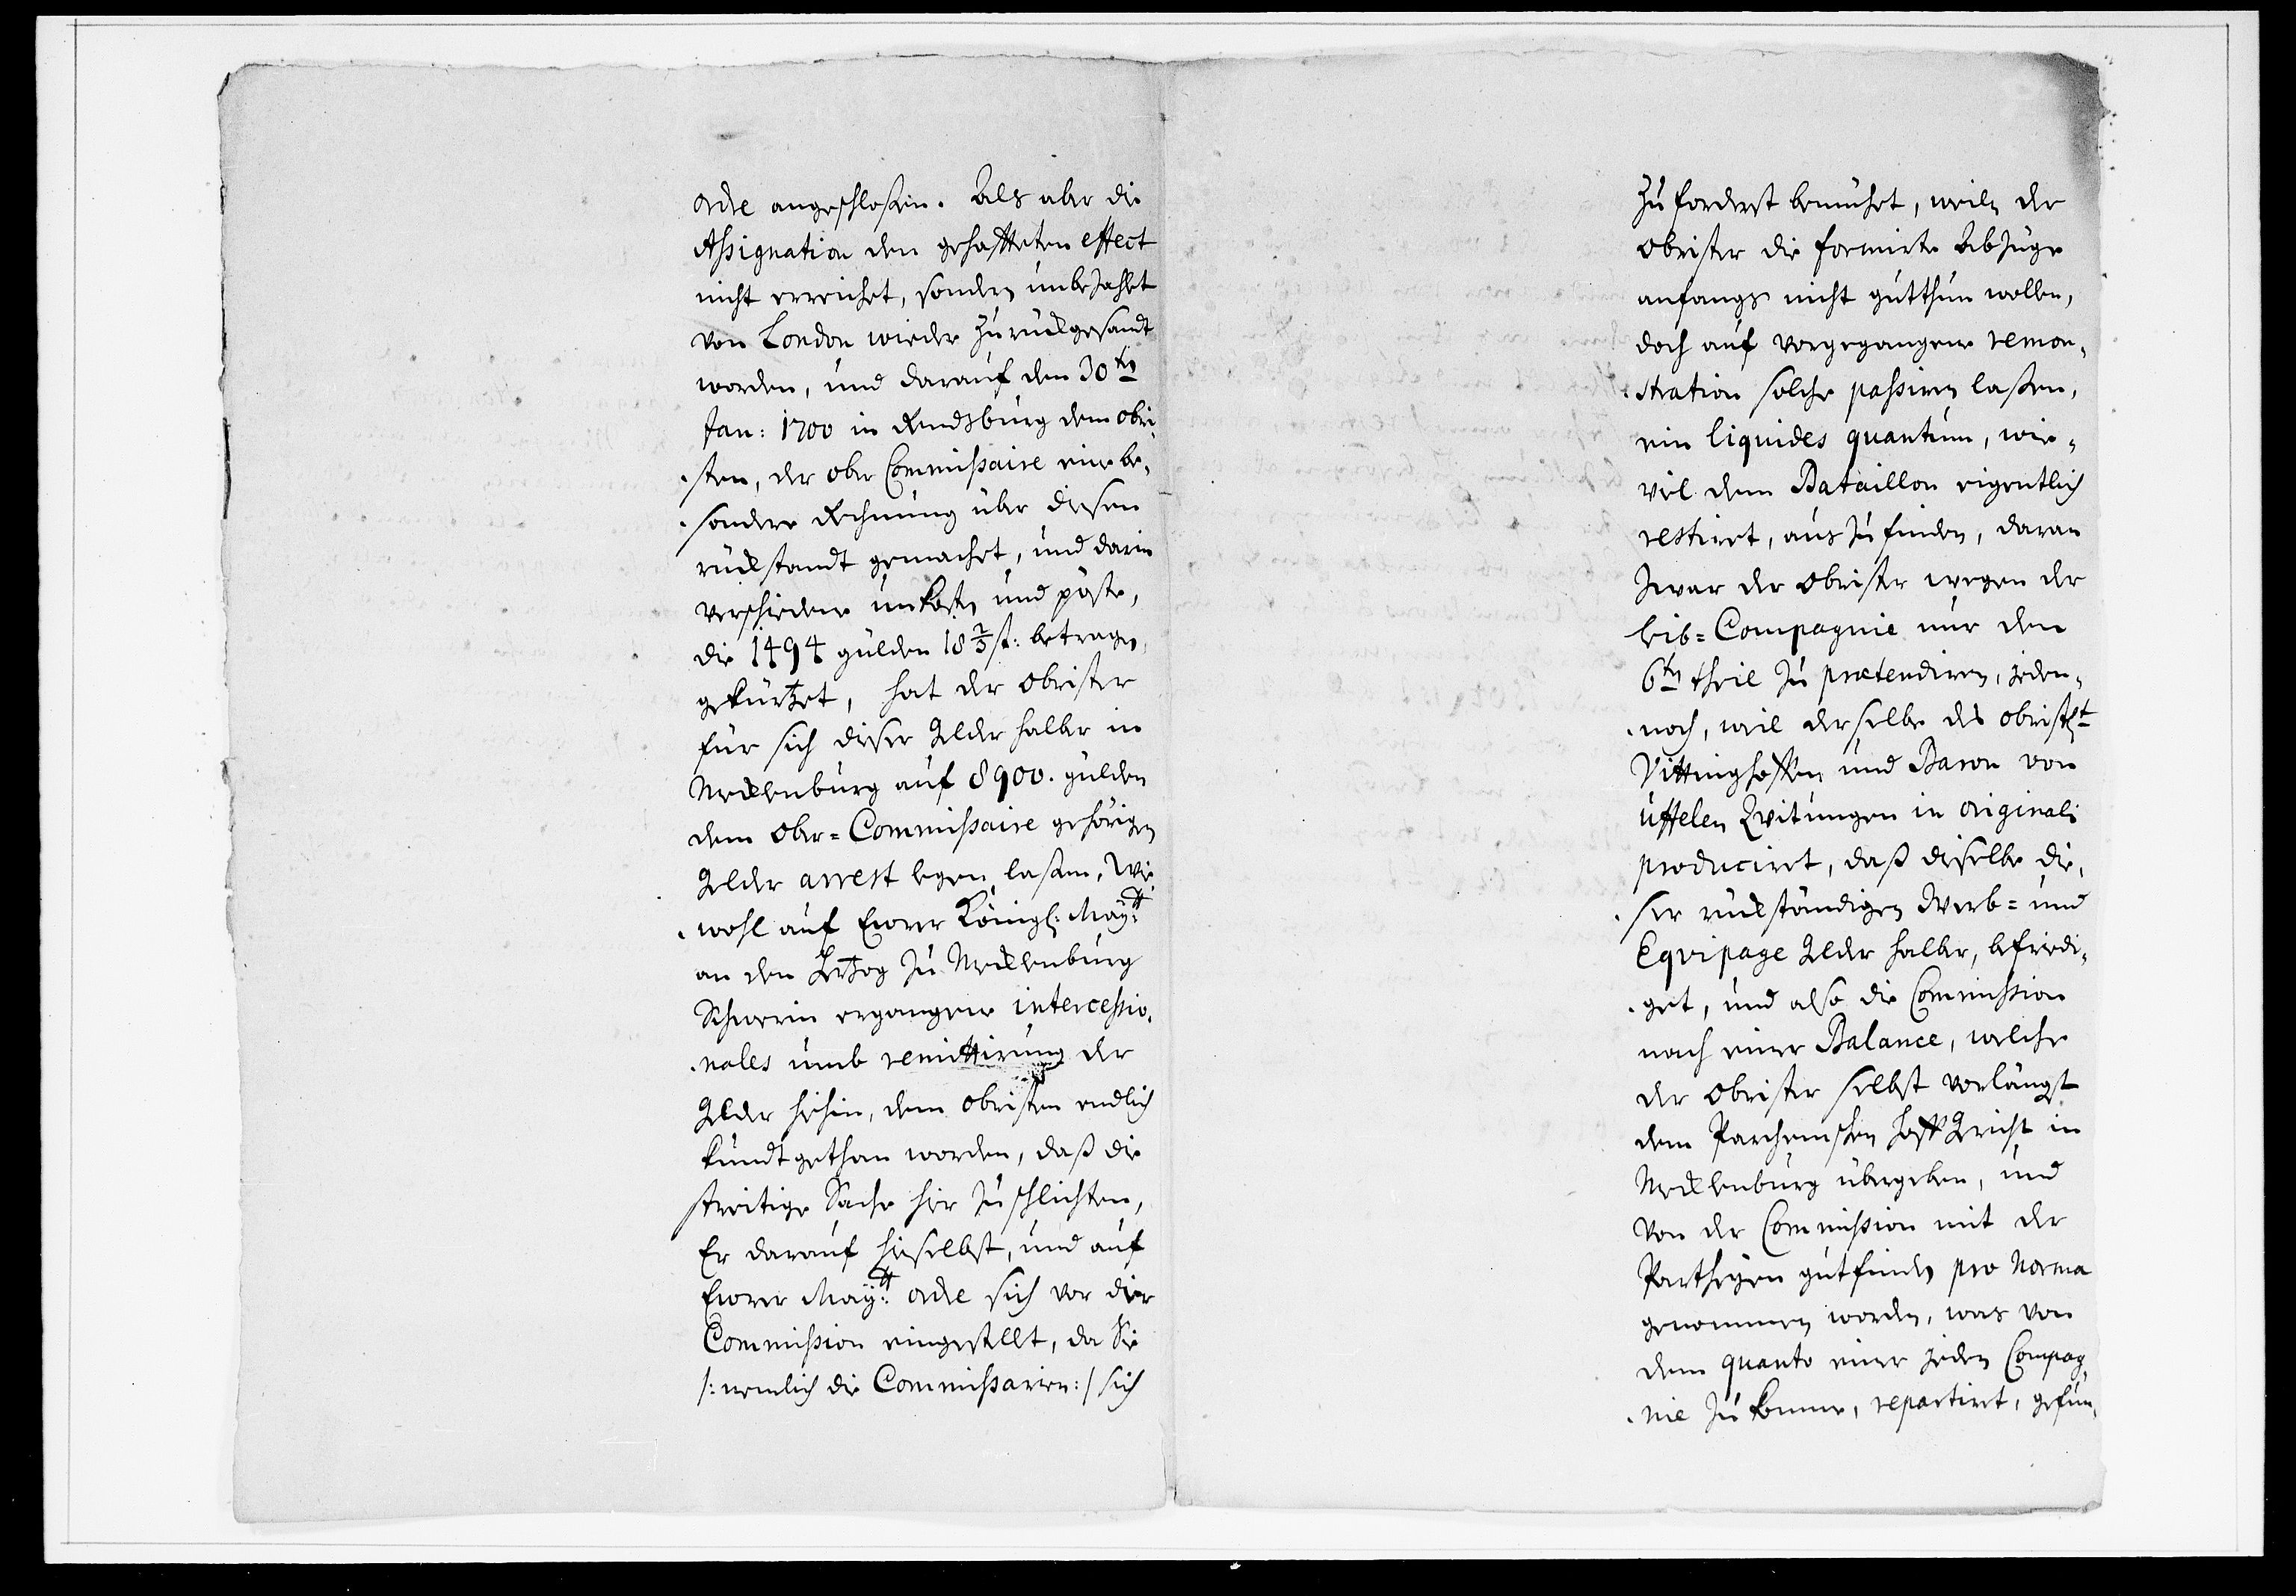 ordre angeschloßen. Als aber die
Assignation den gehoffeten effect
nicht erreichet, sondern unbezahlet
von London wieder zurückgesandt
worden, und darauf den 30ten
Jan: 1700 in Rendsburg dem Obri-
sten, der Ober Commissaire eine be-
sondere Rechnung über diesen
rückstandt gemachet, und darin
verschiedene unkosten und pöste,
die 1494 gülden 18 2/3 st: betragen,
gekürtzet, hat der Obrister
für sich dieser Gelder halber in
Mecklenburg auf 8900. gülden
dem Ober-Commissaire gehörigen
Gelder arrest legen laßen, wie-
wohl auf Eurer Königl: Maytt:
an den Hertzog zu Mecklenburg
Schwerin ergangene intercessio-
nales umb remittirung der
Gelder hiehin, dem Obristen endlich
kundt gethan worden, daß die
streitige Sache hier zu schlichten,
Er darauf hieselbst, und auf
Eurer Maytt: ordre sich vor der
Commission eingestellt, da Sie
/: nemlich die Commissarien :/ sich
zuforderst bemühet, weiln der
Obrister die formirte Abzüge
anfangs nicht gutthun wollen,
doch auf vorgegangene remon-
stration solche passiren laßen,
ein liquides quantum, wie-
viel dem Bataillon eigentlich
restiret, auszufinden, daran
zwar der Obrister wegen der
Leib-Compagnie nur den
6ten theil zu prætendiren, jeden-
noch, weil derselbe des Obristlt
Vittinghoffen und Baron von
Uffelen Qvitungen in originali
produciret, daß dieselbe die-
ser rückständigen Werb- und
Eqvipage Gelder halber, befriedi-
get, und also die Commission
nach einer Balance, welche
der Obrister selbst vorlängst
dem Parchemschen Hoff Gericht in
Mecklenburg übergeben, und
von der Commission mit der
Partheyen gutfinden pro Norma
genommen worden, was von
dem quanto einer jeden Compag-
nie zu komme, repartiret, gefun-